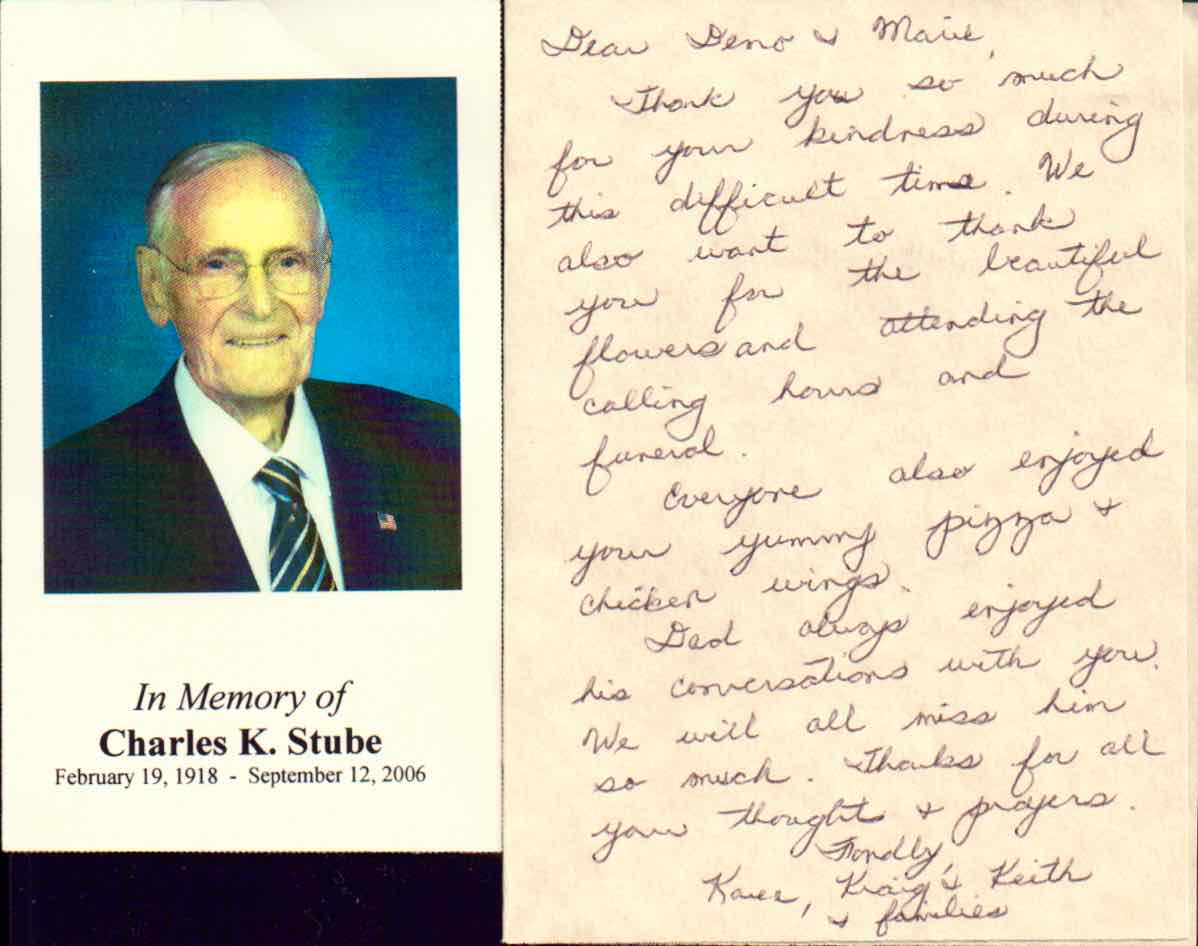 In Memory of
Charles K. Stube
February 19, 1918 - September 12, 2006
Dear Deno & Marie,
Thank you so much
for your kindness during
this difficult time. We
also want to thank
you for the beautiful
flowers and attending the
calling hours and
funeral.
Everyone also enjoyed
your yummy pizza &
chicken wings.
Dad always enjoyed
his conversations with you.
We will all miss him
so much. Thanks for all
your thoughts & prayers.
Fondly,
Karen, Kraig & Keith
& families